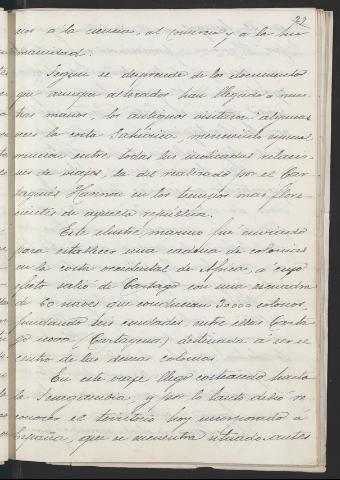 22
nos a la ciencia, al comercio y a la hu
manidad.
Segun se desprende de los documentos
que aunque alterados han llegado a nues-
tras manos, los antiguos visitaron algunas
veces la costa Sahárica mereciendo especial
mencion entre todas las indicadas relacio-
nes de viajes, la del realizado por el Car-
taginés Hannon en los tiempos mas flore-
cientes de aquella república.
Este ilustre marino fué enviado
para establecer una cadena de colonias
en la costa occidental de Africa, a cuyo
efecto salió de Cartago con una escuadra
de 60 naves que conducian 30000 colonos,
fundando seis ciudades, entre ellas Carta-
go nova (Cartagena) destinada a ser el
centro de las demas colonias.
En este viaje llegó costeando hasta
la Senegambia, y por lo tanto debió re
conocer el territorio hoy incorporado á
España, que se encuentra situado antes